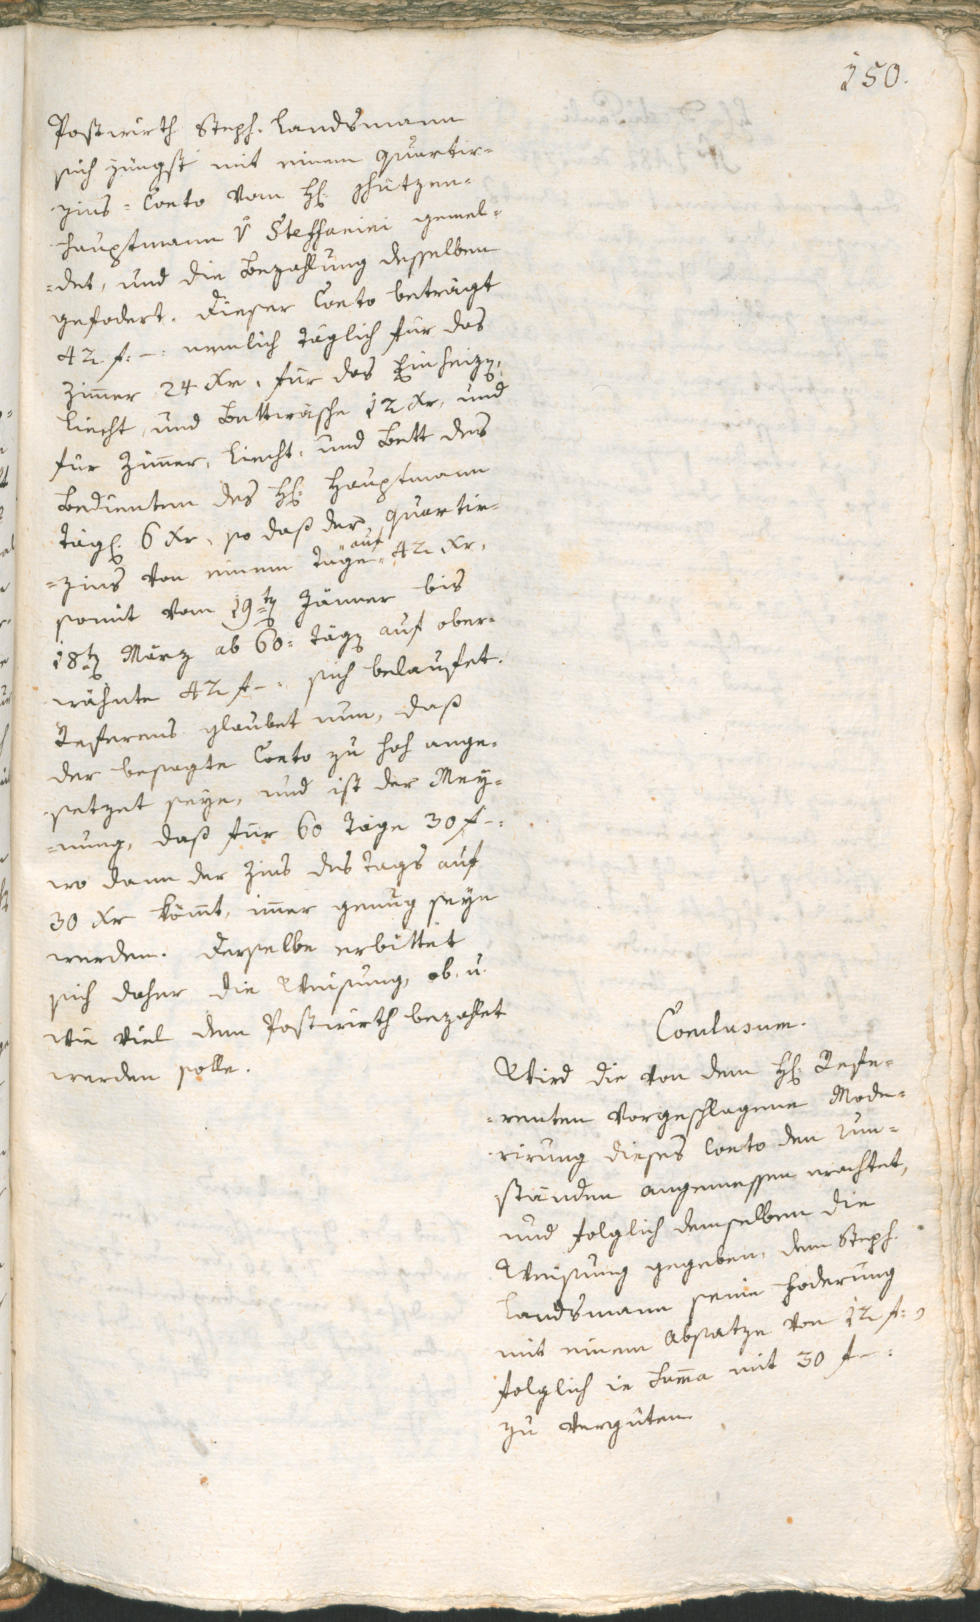 150.
Postwirth Steph. Landsmann
sich jüngst mit einem Quartir-
zins-Conto vom H: Schützen-
hauptmann v Steffanini gemel-
-det, und die Bezahlung desselben
gefodert. Dieser Conto beträgt
42 f: –: nemlich täglich für das
Zimer 24 Xr, für das Einheizen,
Liecht, und Bettwäsche 12 Xr, und
für Zimer, Liecht, und Bett des
Bedienten des H: Hauptmann
tägl: 6 Xr, so daß der Quartir-
-zins von einem Tage auf 42 Xr,
somit vom 19ten Jänner bis
18ten März ab 60 Tägen auf ober-
wähnte 42 f –: sich belaufet.
Referens glaubet nun, daß
der besagte Conto zu hoh ange-
setzet seye, und ist der Mey-
-nung, daß für 60 Täge 30 f –:
wo dann der Zins des Tags auf
30 Xr kömt, imer genug seyn
werden. Derselbe erbittet
sich daher die Weisung, ob u.
wie viel dem Postwirth bezahlet
werden solle.
Conclusum.
Wird die von dem H: Refe-
-renten vorgeschlagene Mode-
rirung dieses Conto den Um-
ständen angemessen erachtet,
und folglich demselben die
Weisung gegeben, dem Steph.
Landsmann seine Foderung
mit einem Absatze von 12 f:,
folglich in Suma mit 30 f –:
zu vergüten.